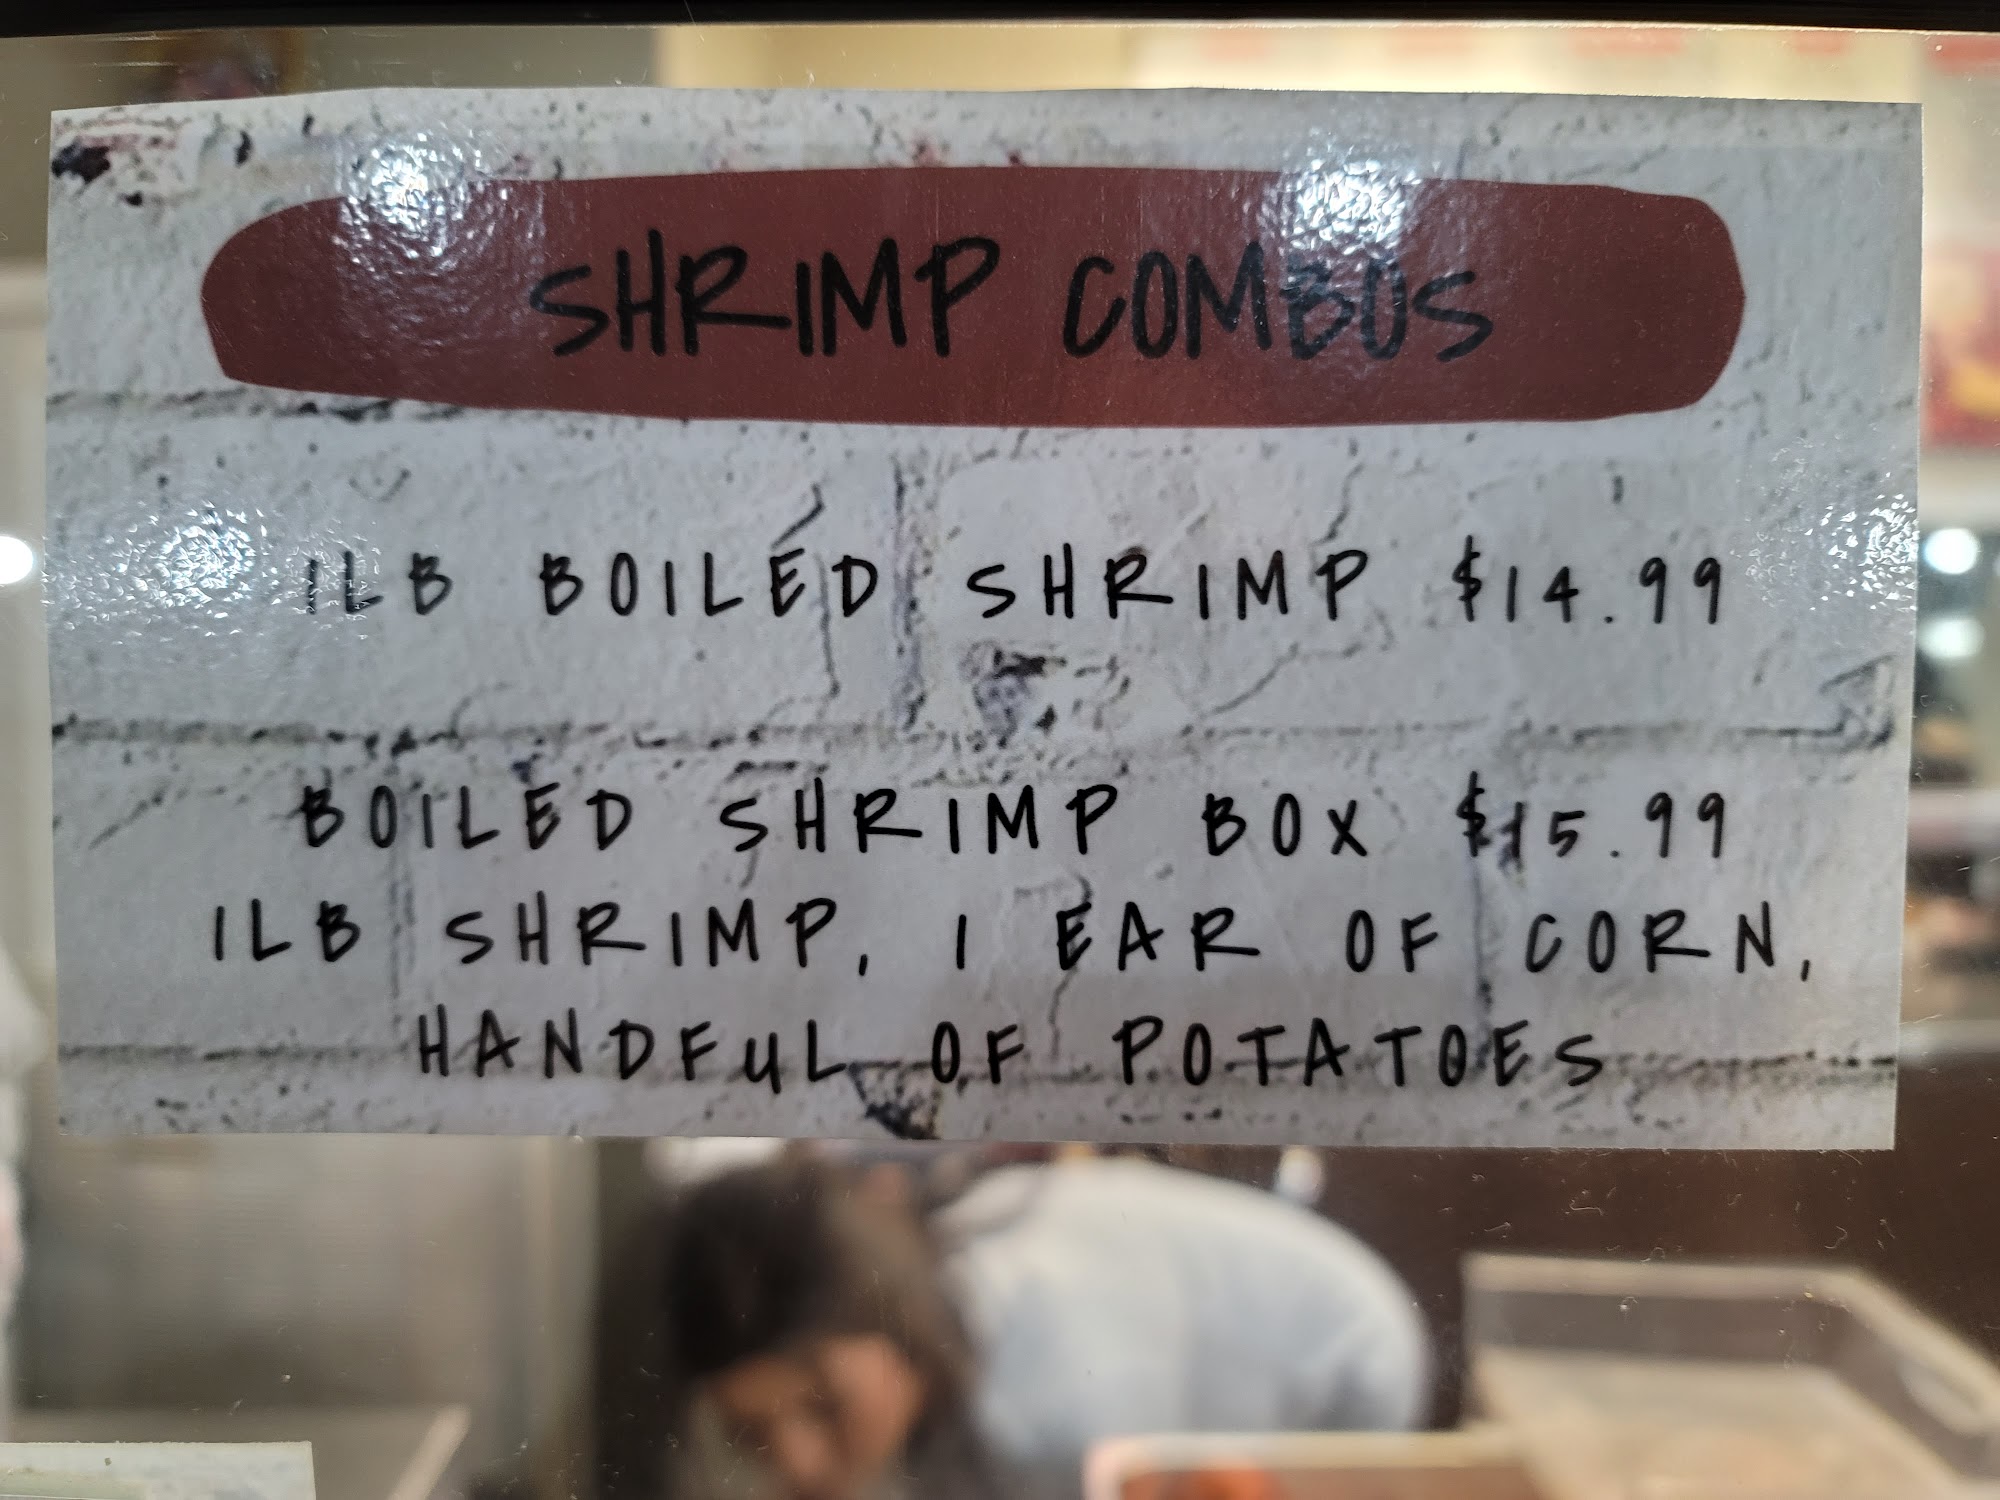 SHRIMP COMBOS
1LB BOILED SHRIMP $14.99
BOILED SHRIMP BOX $15.99
1LB SHRIMP, 1 EAR OF CORN,
HANDFUL OF POTATOES